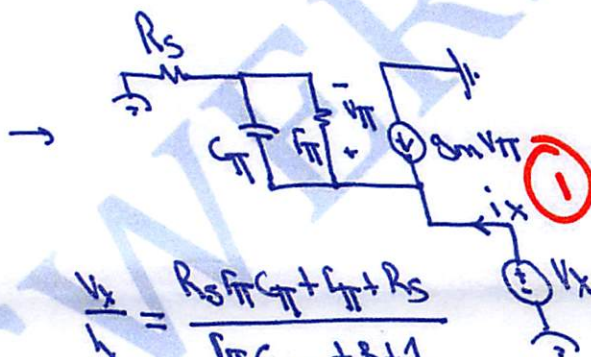 Rs
→
Cπ rπ - Vπ + gmVπ
ix
1
Vx
Vx = Rs rπ Cπ + rπ + Rs